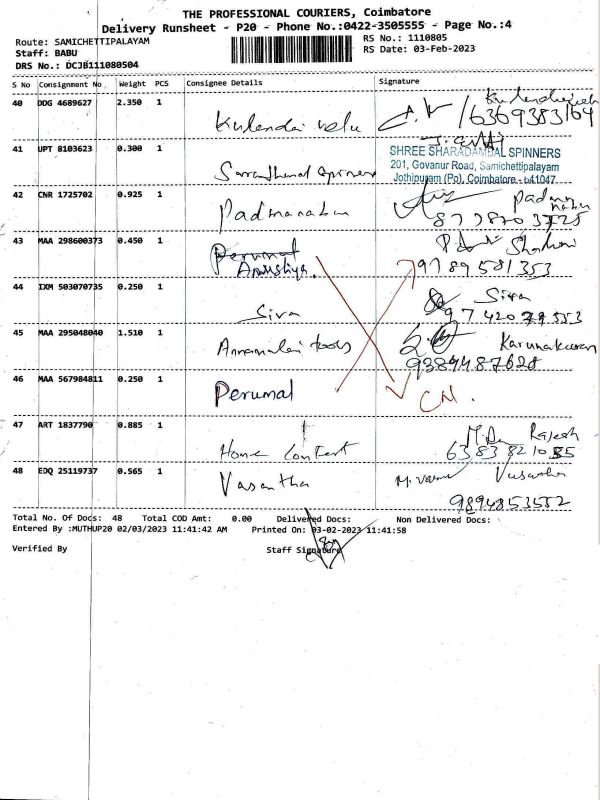 THE PROFESSIONAL COURIERS, Coimbatore
Delivery Runsheet - P20 - Phone No.:0422-3505555 - Page No.:4
Route: SAMICHETTIPALAYAM
RS No.: 1110805
Staff: BABU
RS Date: 03-Feb-2023
DRS No.: DCJB111080504
S No Consignment No Weight PCS Consignee Details Signature
40 DDG 4689627 2.350 1 Kulendai velu 6369383164
41 UPT 8103623 0.300 1
SHREE SHARADAMBAL SPINNERS
201, Govanur Road, Samichettipalayam
Jothipuram (Po), Coimbatore - 641047.
42 CNR 1725702 0.925 1 Padmanabun
43 MAA 298600373 0.450 1 Perumal
9789581353
44 IXM 503070735 0.250 1 Siva Siva
45 MAA 295048040 1.510 1 Annamalai tools Karunakaran
9384487628
46 MAA 567984811 0.250 1 Perumal CN.
47 ART 1837790 0.885 1 Home Rajesh
48 EDQ 25119737 0.565 1 Vasantha
9894853552
Total No. Of Docs: 48 Total COD Amt: 0.00 Delivered Docs: Non Delivered Docs:
Entered By :MUTHUP20 02/03/2023 11:41:42 AM Printed On: 03-02-2023 11:41:58
Verified By Staff Signature